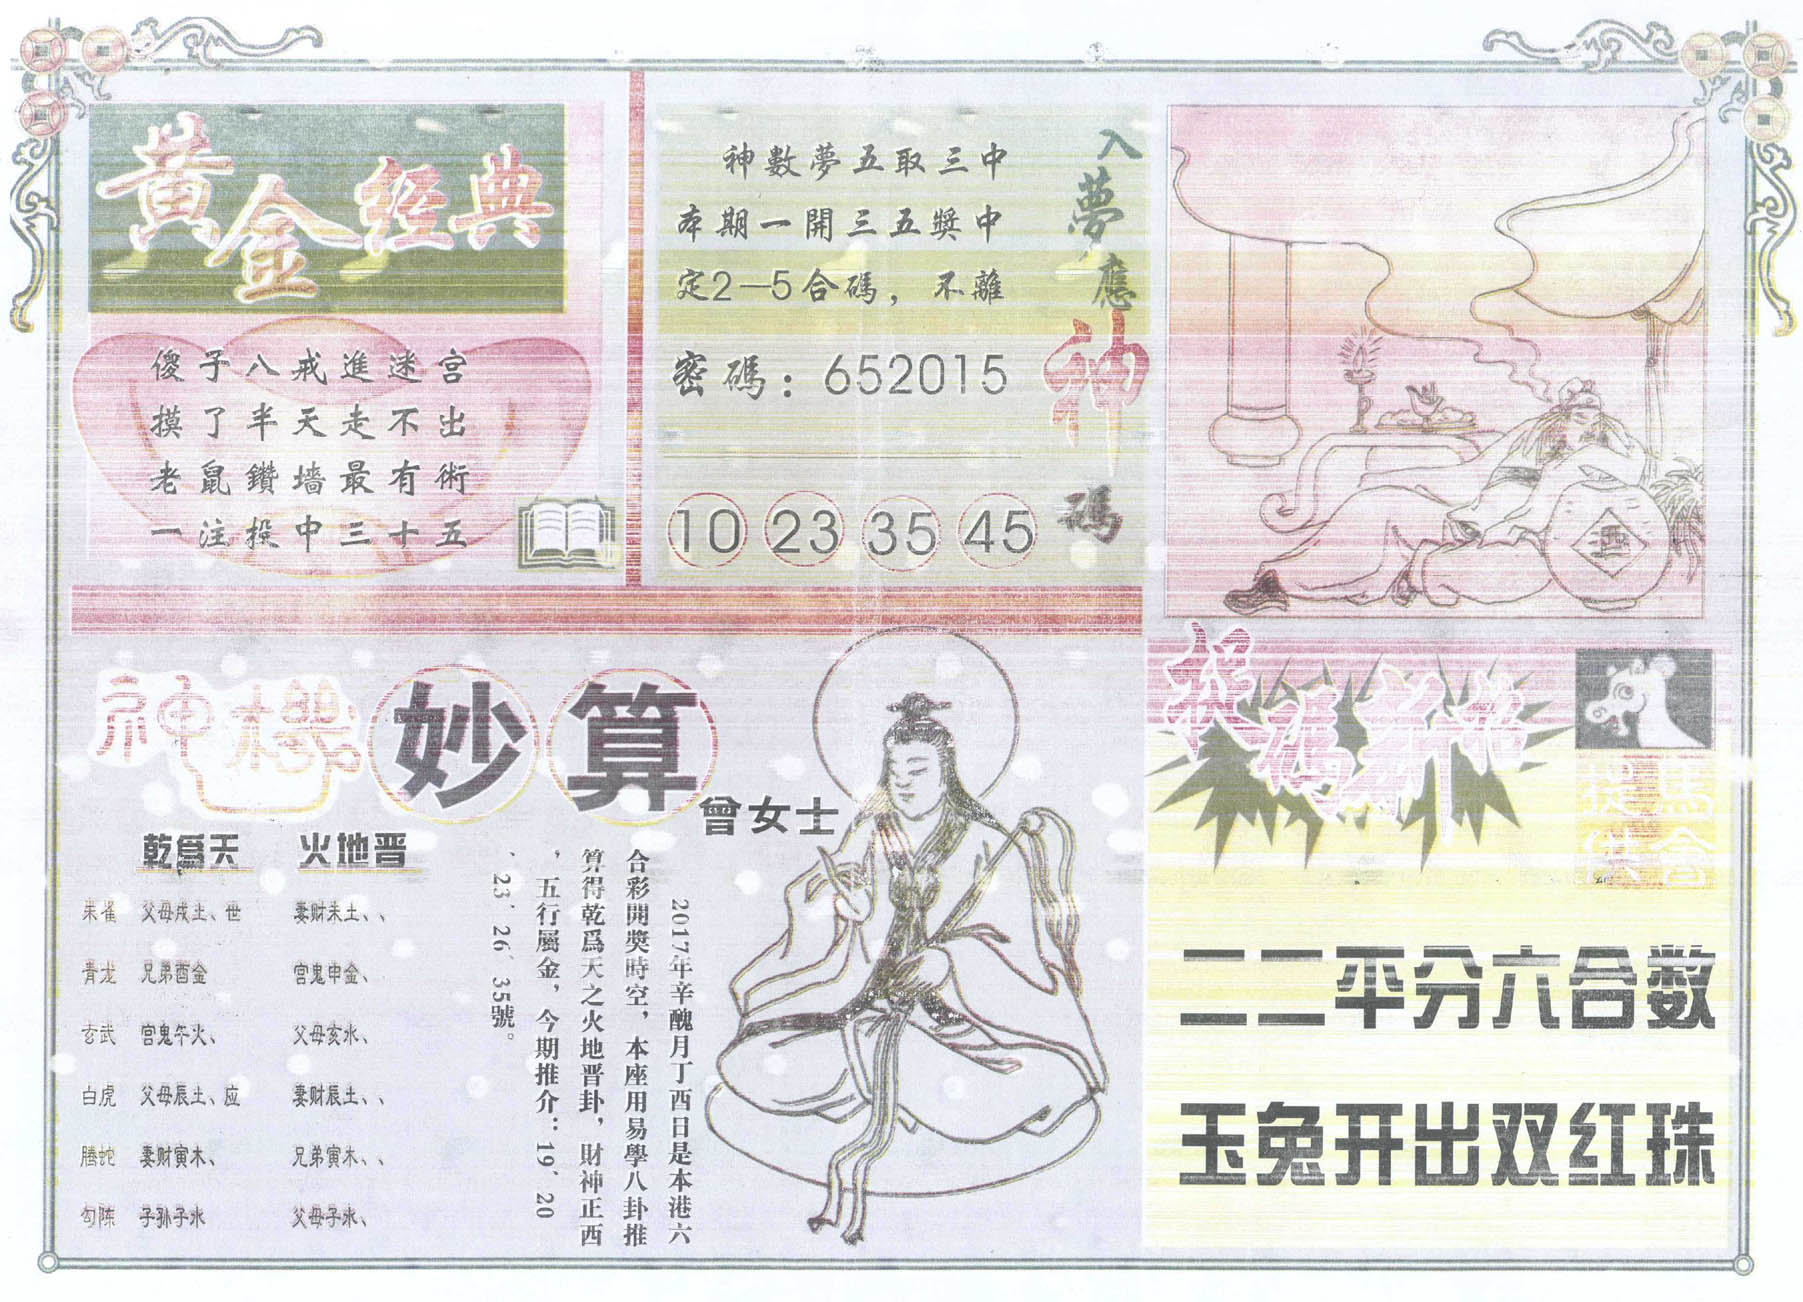 黄金經典
傻子八戒進迷宫
摸了半天走不出
老鼠鑽墙最有術
一注投中三十五
入夢應神碼
神數夢五取三中
本期一開三五獎中
定2—5合碼，不離
密碼：652015
10 23 35 45
神機妙算
曾女士
乾爲天 火地晋
朱雀 父母戌土、世 妻财未土、、
青龙 兄弟酉金 官鬼申金、
玄武 官鬼午火、 父母亥水、
白虎 父母辰土、应 妻财辰土、、
腾蛇 妻财寅木、 兄弟寅木、、
勾陈 子孙子水 父母子水、
2017年辛醜月丁酉日是本港六
合彩開獎時空，本座用易學八卦推
算得乾爲天之火地晋卦，財神正西
，五行屬金，今期推介：19、20
、23、26、35號。
捉碼新招
馬會
提供
二二平分六合数
玉兔开出双红珠